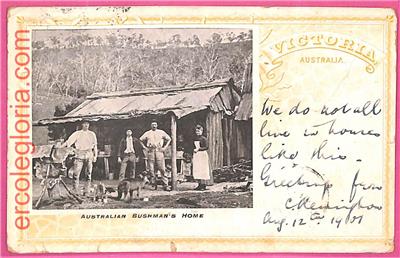 ercolegloria.com
VICTORIA
AUSTRALIA.
We do not all
live in houses
like this -
Greetings from
Aug. 12th 1901
AUSTRALIAN BUSHMAN'S HOME